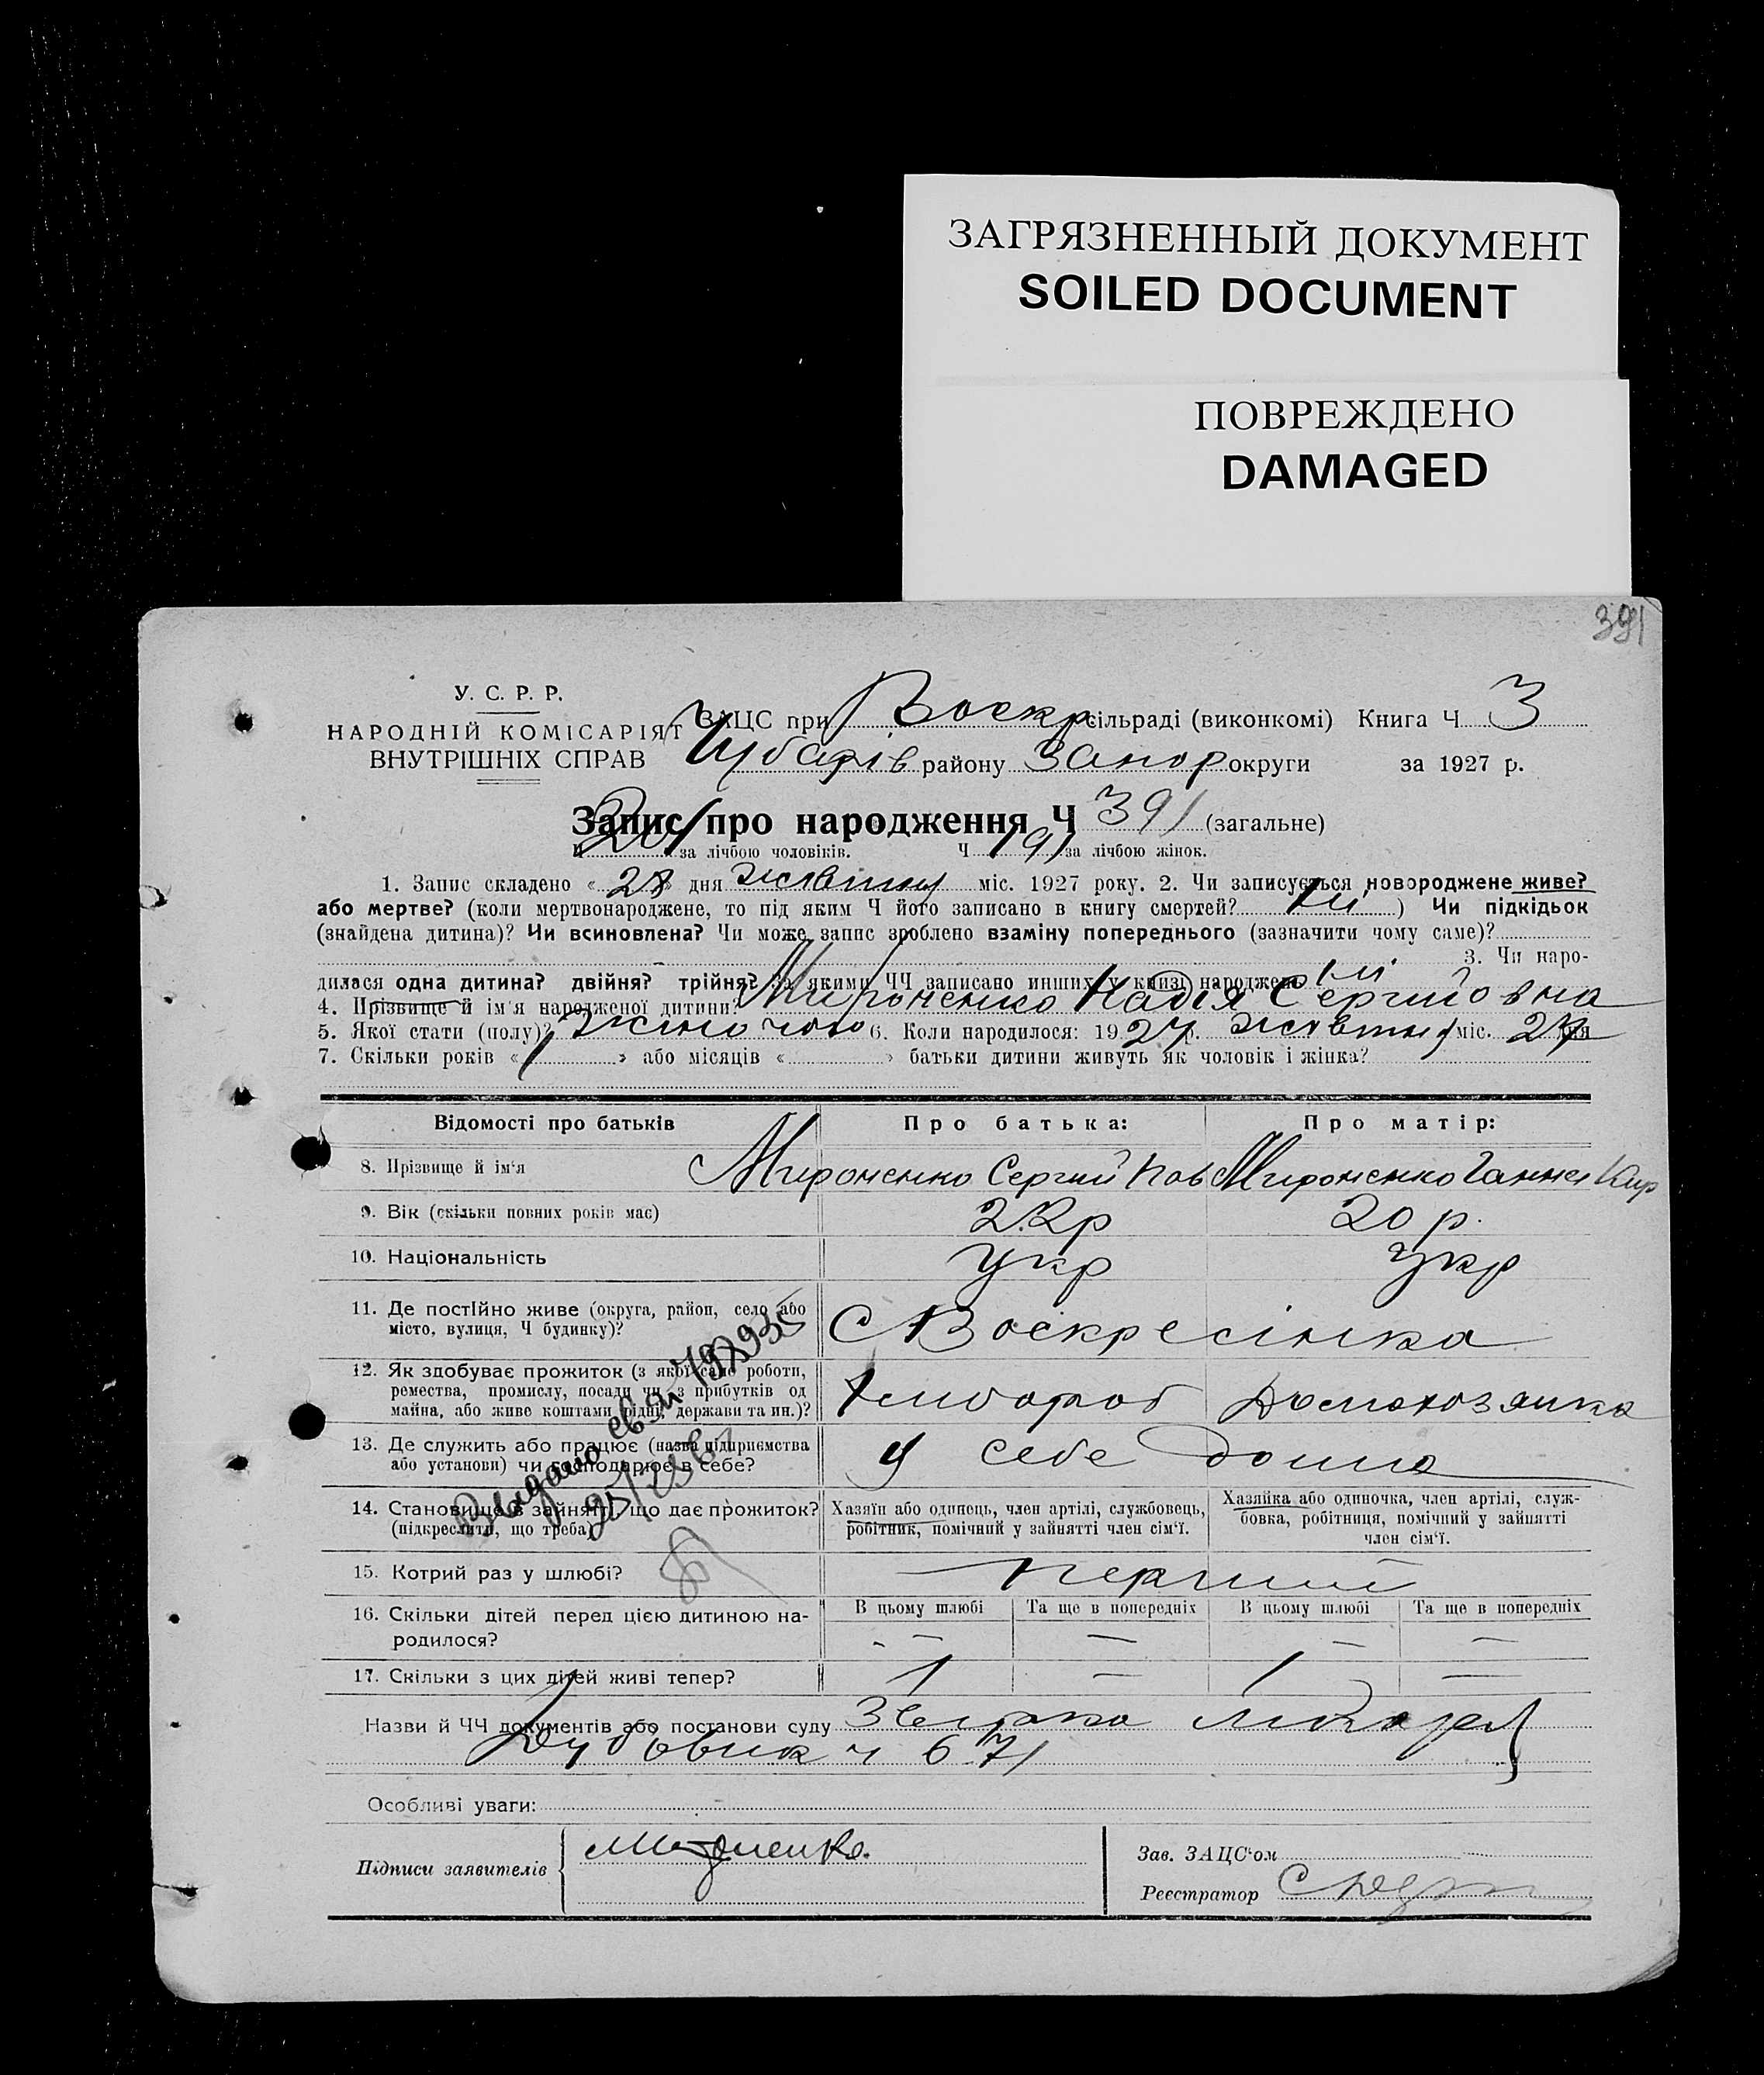 ЗАГРЯЗНЕННЫЙ ДОКУМЕНТ
SOILED DOCUMENT
ПОВРЕЖДЕНО
DAMAGED
391
У. С. Р. Р.
НАРОДНІЙ КОМІСАРІЯТ
ВНУТРІШНІХ СПРАВ
ЗАЦС при Воскр сільраді (виконкомі) Книга Ч 3
Чубарів району Запор округи за 1927 р.
Запис про народження Ч 391 (загальне)
Ч за лічбою чоловіків. Ч 191 за лічбою жінок.
1. Запис складено « 28 » дня жовтня міс. 1927 року. 2. Чи записується новороджене живе?
або мертве? (коли мертвонароджене, то під яким Ч його записано в книгу смертей? ні ) Чи підкідьок
(знайдена дитина)? Чи всиновлена? Чи може запис зроблено взаміну попереднього (зазначити чому саме)?
3. Чи наро-
дилася одна дитина? двійня? трійня? За якими ЧЧ записано инших у книзі народжень ні
4. Прізвище й ім'я народженої дитини? Мироненко Надія Сергийовна
5. Якої стати (полу)? жіночого 6. Коли народилося: 1927 р. жовтня міс. 27 дня
7. Скільки років « 1 » або місяців « » батьки дитини живуть як чоловік і жінка?
Відомості про батьків Про батька: Про матір:
8. Прізвище й ім'я Мироненко Сергий Пав Мироненко Ганна Кир
9. Вік (скільки повних років має) 22р 20 р.
10. Національність Укр Укр
11. Де постійно живе (округа, район, село або
місто, вулиця, Ч будинку)? С Воскресінка
12. Як здобуває прожиток (з якої саме роботи,
ремества, промислу, посади чи з прибутків од
майна, або живе коштами рідні, держави та ин.)? Хлибороб Домохозяика
13. Де служить або працює (назва підприємства
або установи) чи господарює в себе? У себе дома
14. Становище в зайнятті, що дає прожиток?
(підкреслити, що треба)
Хазяїн або одинець, член артілі, службовець,
робітник, помічний у зайнятті член сім'ї.
Хазяйка або одиночка, член артілі, служ-
бовка, робітниця, помічний у зайнятті
член сім'ї.
Видано св
15. Котрий раз у шлюбі? перший
16. Скільки дітей перед цією дитиною на-
родилося?
В цьому шлюбі Та ще в попередніх В цьому шлюбі Та ще в попередніх
— — — —
17. Скільки з цих дітей живі тепер? 1 — 1 —
Назви й ЧЧ документів або постанови суду
Дубовик ч 671
Особливі уваги:
Підписи заявителів Мироненко
Зав. ЗАЦС'ом
Реєстратор